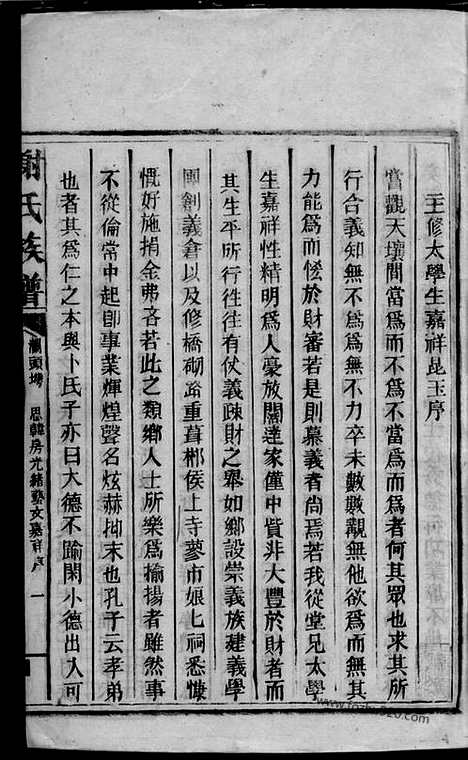 主修太學生嘉祥昆玉序
嘗觀天壤間當爲而不爲不當爲而爲者何其眾也求其所
行合義知無不爲爲無不力卒未數數覯無他欲爲而無其
力能爲而慳於財審若是則慕義者尚焉若我從堂兄太學
生嘉祥性精明爲人豪放闊達家僅中貲非大豐於財者而
其生平所行徃徃有仗義疎財之舉如鄉設崇義族建義學
團創義倉以及修橋砌路重葺郴侯上寺蓼市娘上祠悉慷
慨好施捐金弗吝若此之類鄉人士所樂爲揄揚者雖然事
不從倫常中起卽事業輝煌聲名炫赫抑末也孔子云孝弟
也者其爲仁之本與卜氏子亦曰大德不踰閑小德出入可
謝氏族譜
頭塆 思韓房光緒藝文嘉祥序 一
www.fozhu920.com